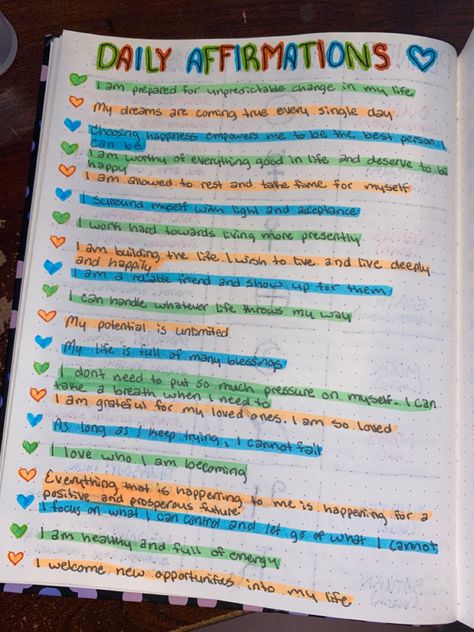 DAILY AFFIRMATIONS
I am prepared for unpredictable change in my life
My dreams are coming true every single day
Choosing happiness empowers me to be the best person I
can be
I am worthy of everything good in life and deserve to be
happy
I am allowed to rest and take time for myself
I surround myself with light and acceptance
I work hard towards living more presently
I am building the life I wish to live and live deeply
and happily
I am a reliable friend and show up for them
I can handle whatever life throws my way
My potential is unlimited
My life is full of many blessings
I dont need to put so much pressure on myself. I can
take a breath when I need to
I am grateful for my loved ones. I am so loved
As long as I keep trying, I cannot fail
I love who I am becoming
Everything that is happening to me is happening for a
positive and prosperous future
I focus on what I can control and let go of what I cannot
I am healthy and full of energy
I welcome new opportunities into my life